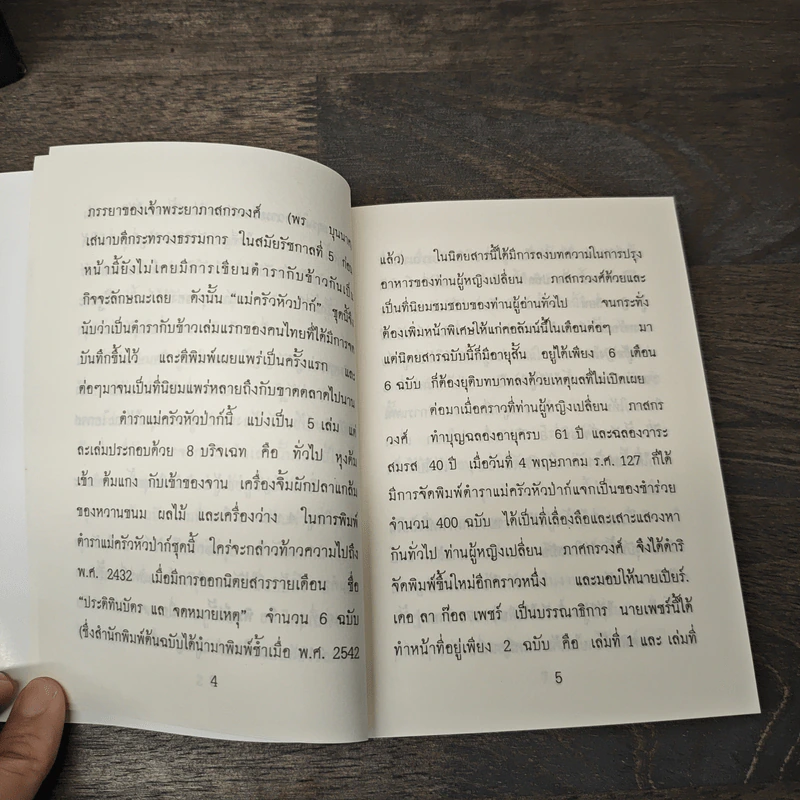 ภรรยาของเจ้าพระยาภาสกรวงศ์ (พร บุนนาค)
เสนาบดีกระทรวงธรรมการ ในสมัยรัชกาลที่ 5 ก่อน
หน้านี้ยังไม่เคยมีการเขียนตำรากับข้าวกันเป็น
กิจจะลักษณะเลย ดังนั้น “แม่ครัวหัวป่าก์” ชุดนี้จึง
นับว่าเป็นตำรากับข้าวเล่มแรกของคนไทยที่ได้มีการจด
บันทึกขึ้นไว้ และตีพิมพ์เผยแพร่เป็นครั้งแรก และ
ต่อๆมาจนเป็นที่นิยมแพร่หลายถึงกับขาดตลาดไปนาน
ตำราแม่ครัวหัวป่าก์นี้ แบ่งเป็น 5 เล่ม แต่
ละเล่มประกอบด้วย 8 บริจเฉท คือ ทั่วไป หุงต้ม
เข้า ต้มแกง กับเข้าของจาน เครื่องจิ้มผักปลาแกล้ม
ของหวานขนม ผลไม้ และเครื่องว่าง ในการพิมพ์
ตำราแม่ครัวหัวป่าก์ชุดนี้ ใคร่จะกล่าวท้าวความไปถึง
พ.ศ. 2432 เมื่อมีการออกนิตยสารรายเดือน ชื่อ
“ประติทินบัตร แล จดหมายเหตุ” จำนวน 6 ฉบับ
(ซึ่งสำนักพิมพ์ต้นฉบับได้นำมาพิมพ์ซ้ำเมื่อ พ.ศ. 2542
4
แล้ว) ในนิตยสารนี้ได้มีการลงบทความในการปรุง
อาหารของท่านผู้หญิงเปลี่ยน ภาสกรวงศ์ด้วยและ
เป็นที่นิยมชมชอบของท่านผู้อ่านทั่วไป จนกระทั่ง
ต้องเพิ่มหน้าพิเศษให้แก่คอลัมน์นี้ในเดือนต่อๆ มา
แต่นิตยสารฉบับนี้ก็มีอายุสั้น อยู่ได้เพียง 6 เดือน
6 ฉบับ ก็ต้องยุติบทบาทลงด้วยเหตุผลที่ไม่เปิดเผย
ต่อมาเมื่อคราวที่ท่านผู้หญิงเปลี่ยน ภาสกร
วงศ์ ทำบุญฉลองอายุครบ 61 ปี และฉลองวาระ
สมรส 40 ปี เมื่อวันที่ 4 พฤษภาคม ร.ศ. 127 ก็ได้
มีการจัดพิมพ์ตำราแม่ครัวหัวป่าก์แจกเป็นของชำร่วย
จำนวน 400 ฉบับ ได้เป็นที่เลื่องลือและเสาะแสวงหา
กันทั่วไป ท่านผู้หญิงเปลี่ยน ภาศกรวงศ์ จึงได้ดำริ
จัดพิมพ์ขึ้นใหม่อีกคราวหนึ่ง และมอบให้นายเปียร์.
เดอ ลา ก๊อล เพชร์ เป็นบรรณาธิการ นายเพชร์นี้ได้
ทำหน้าที่อยู่เพียง 2 ฉบับ คือ เล่มที่ 1 และ เล่มที่
5